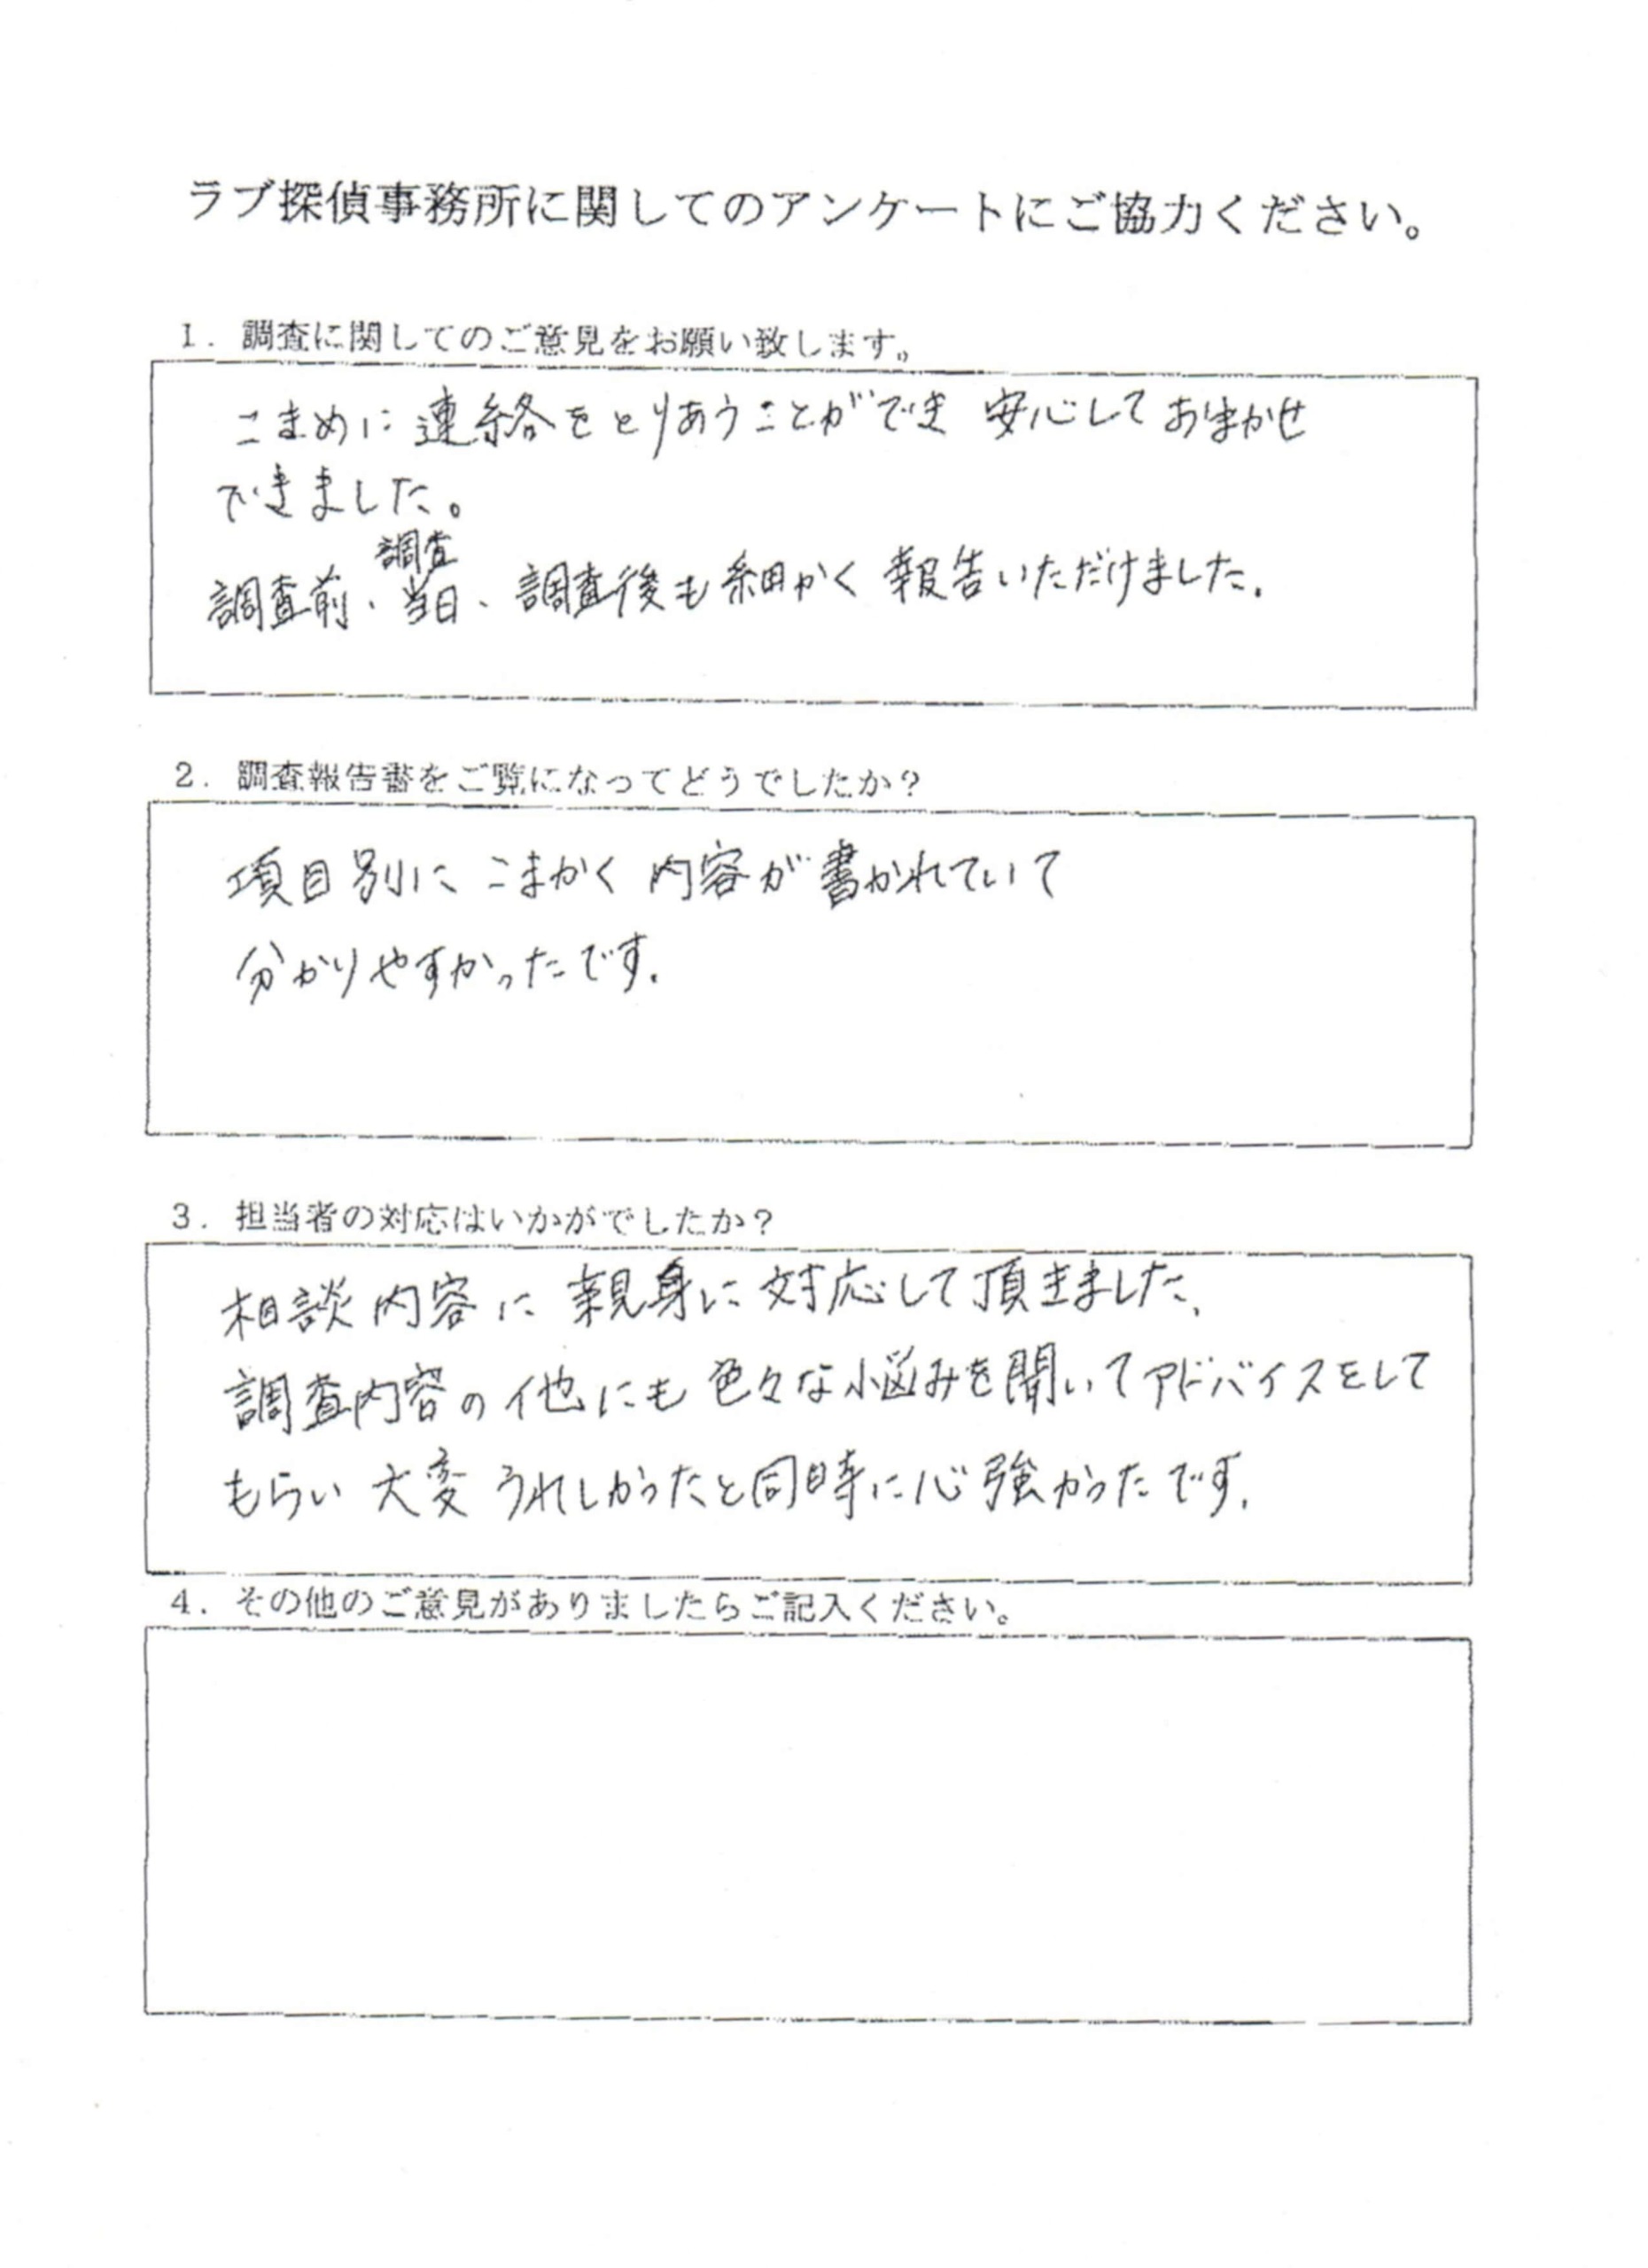 ラブ探偵事務所に関してのアンケートにご協力ください。
1. 調査に関してのご意見をお願い致します。
こまめに連絡をとりあうことができ 安心しておまかせ
できました。
調査
調査前、当日、調査後も細かく報告いただけました。
2. 調査報告書をご覧になってどうでしたか？
項目別に こまかく 内容が書かれていて
分かりやすかったです。
3. 担当者の対応はいかがでしたか？
相談内容に 親身に対応して頂きました、
調査内容の他にも色々な悩みを聞いてアドバイスをして
もらい 大変 うれしかったと同時に心強かったです。
4. その他のご意見がありましたらご記入ください。